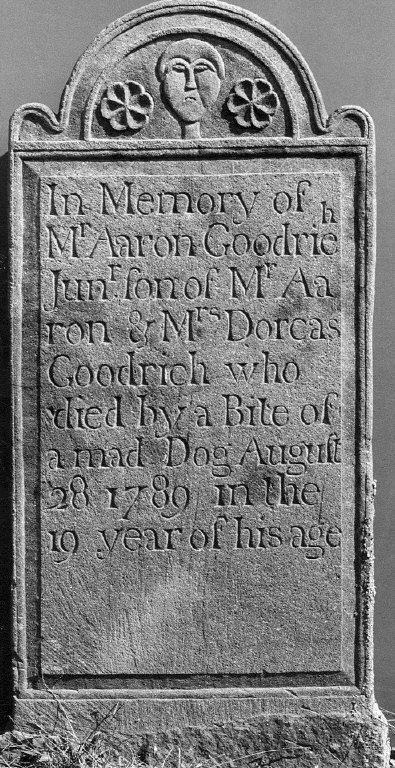 In Memory of
Mr Aaron Goodrich
Junr ſon of Mr Aa
ron & Mrs Dorcas
Goodrich who
died by a Bite of
a mad Dog Auguſt
28 1789 in the
19 year of his age